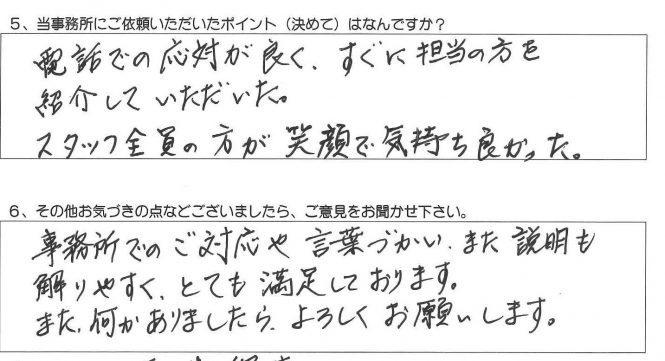 5、当事務所にご依頼いただいたポイント（決めて）はなんですか？
電話での応対が良く、すぐに担当の方を
紹介していただいた。
スタッフ全員の方が笑顔で気持ち良かった。
6、その他お気づきの点などございましたら、ご意見をお聞かせ下さい。
事務所でのご対応や言葉づかい、また説明も
解りやすく、とても満足しております。
また、何かありましたら、よろしくお願いします。